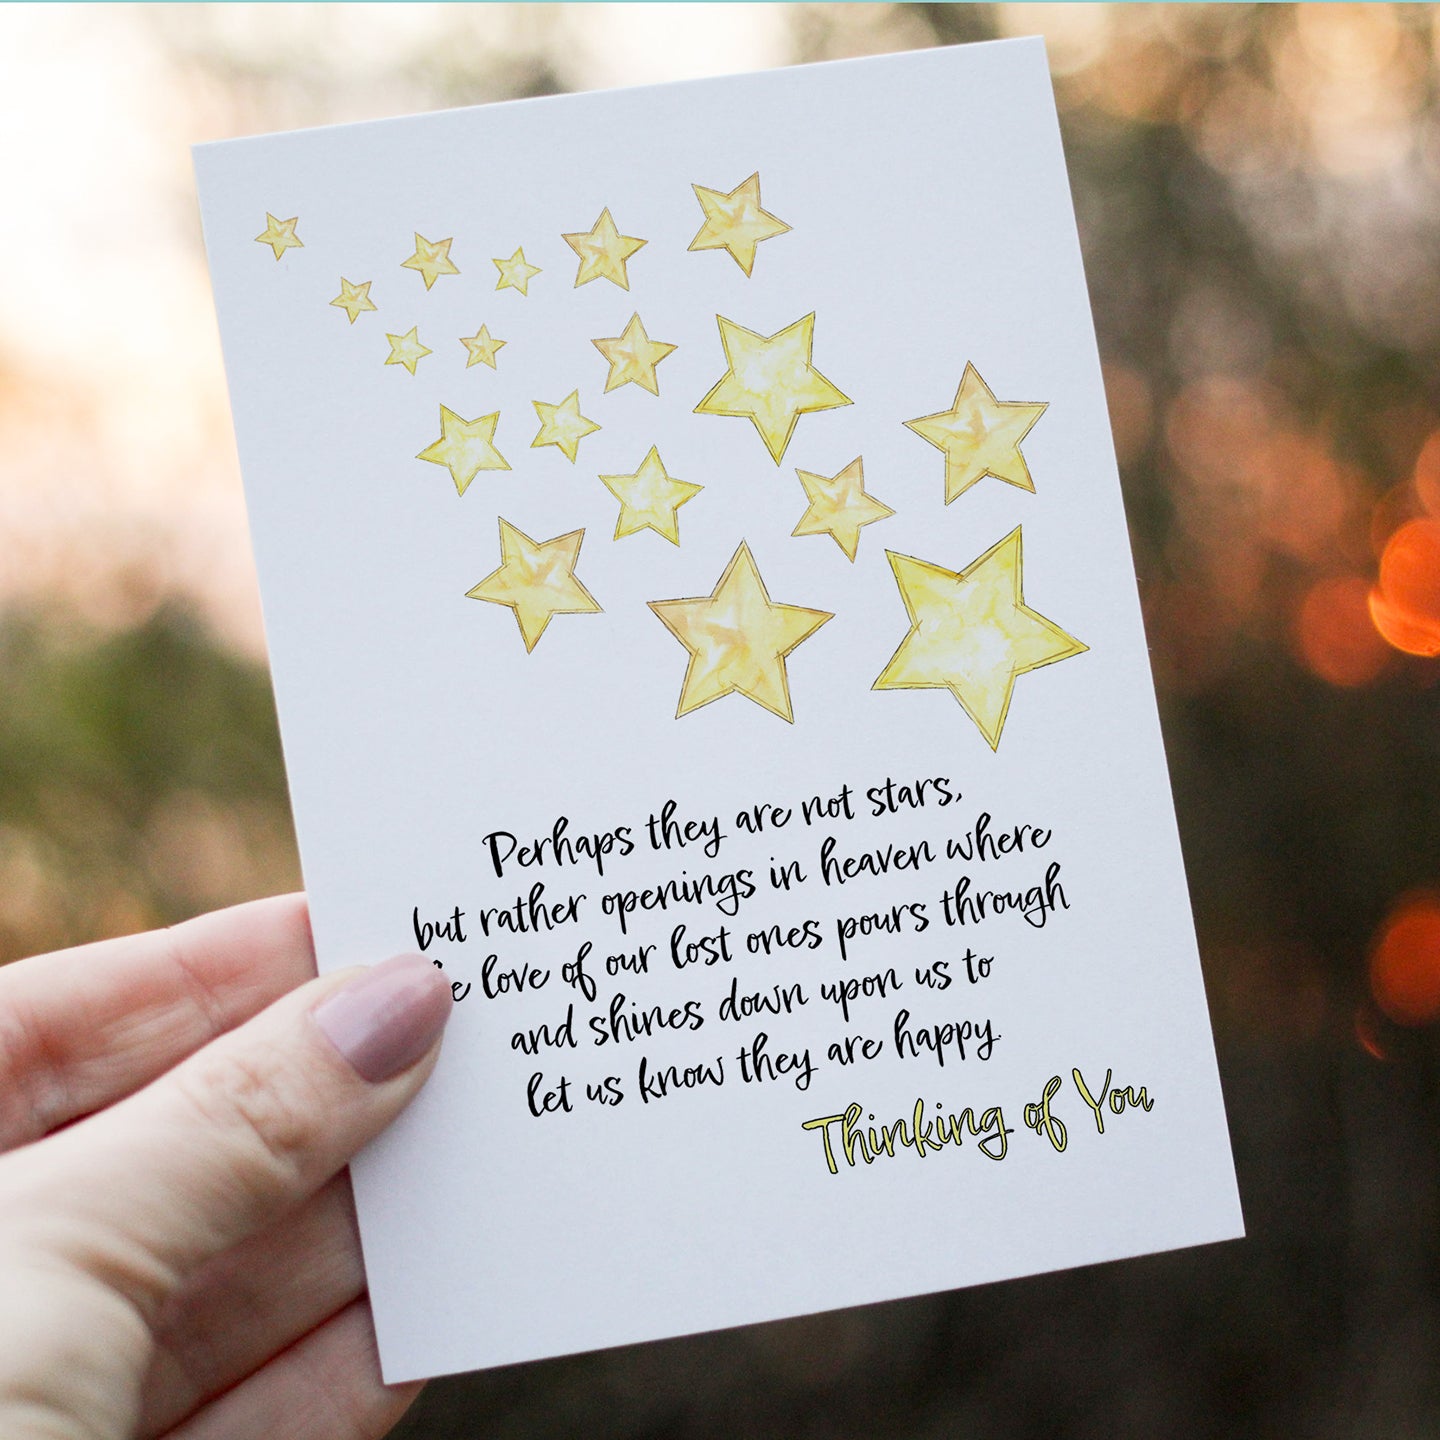 Perhaps they are not stars,
but rather openings in heaven where
love of our lost ones pours through
and shines down upon us to
let us know they are happy.
Thinking of You